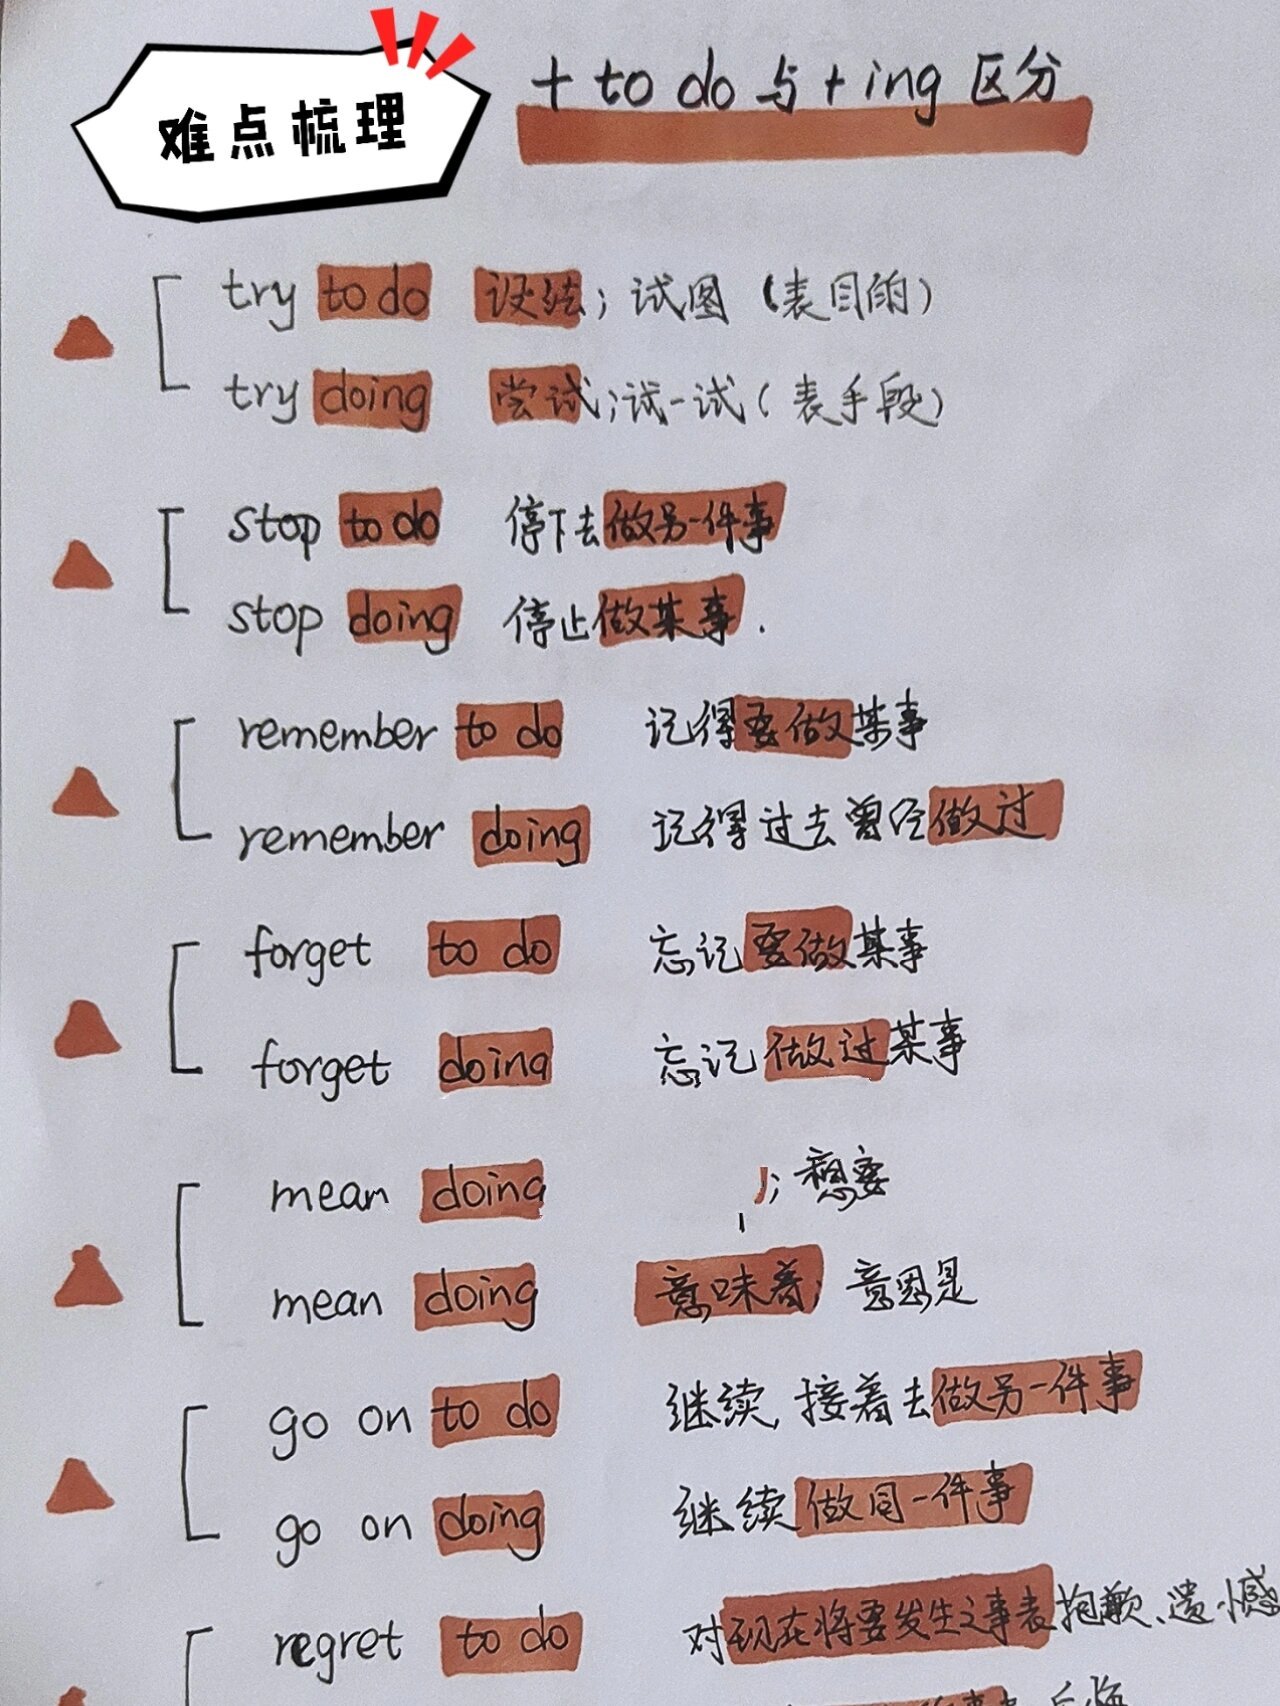 难点梳理
+ to do 与 + ing 区分
try to do 设法；试图（表目的）
try doing 尝试；试一试（表手段）
stop to do 停下去做另一件事
stop doing 停止做某事.
remember to do 记得要做某事
remember doing 记得过去曾经做过
forget to do 忘记要做某事
forget doing 忘记做过某事
mean doing ；想要
mean doing 意味着；意思是
go on to do 继续，接着去做另一件事
go on doing 继续做同一件事
regret to do 对现在将要发生之事表抱歉、遗憾